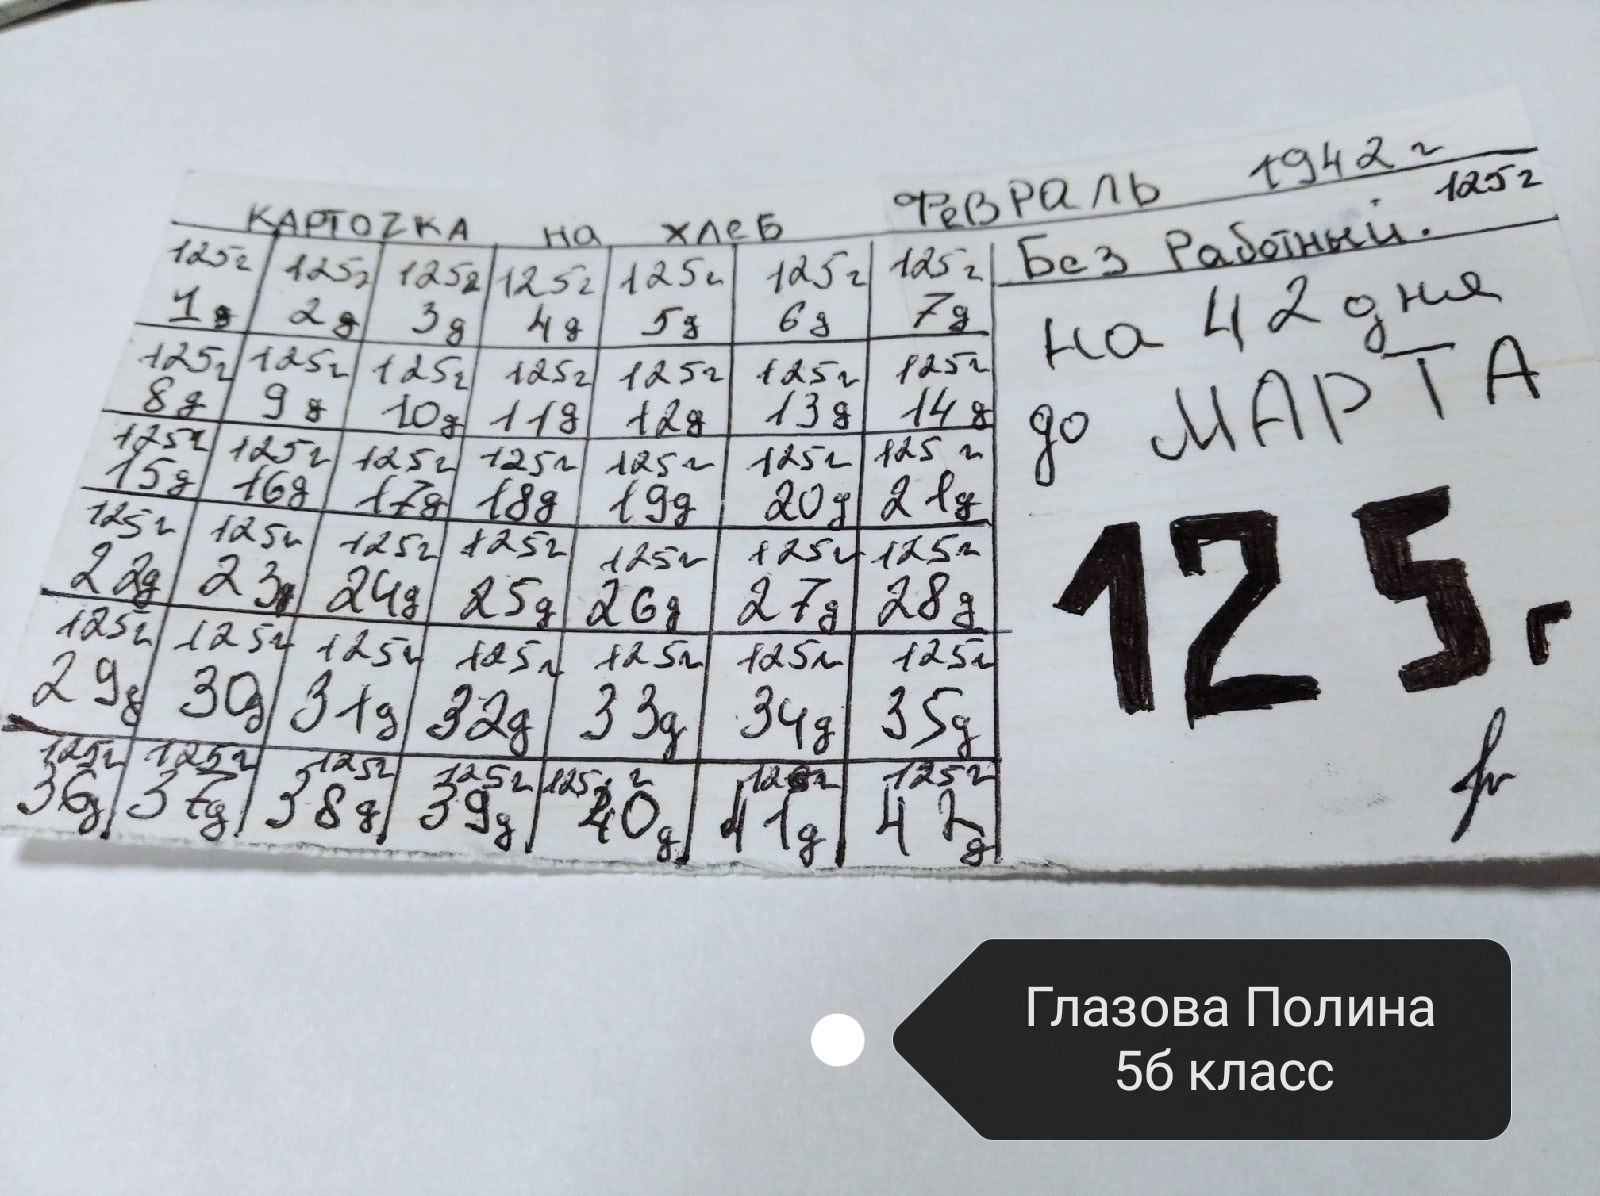 КАРТОЧКА на ХЛеБ ФеВРАЛЬ 1942 г
125г 125г 125г 125г 125г 125г 125г
1д 2д 3д 4д 5д 6д 7д
125г 125г 125г 125г 125г 125г 125г
8д 9д 10д 11д 12д 13д 14д
125г 125г 125г 125г 125г 125г 125г
15д 16д 17д 18д 19д 20д 21д
125г 125г 125г 125г 125г 125г 125г
22д 23д 24д 25д 26д 27д 28д
125г 125г 125г 125г 125г 125г 125г
29д 30д 31д 32д 33д 34д 35д
125г 125г 125г 125г 125г 125г 125г
36д 37д 38д 39д 40д 41д 42д
Без Работный. 125г
на 42 дня
до МАРТА
125г
Глазова Полина
5б класс